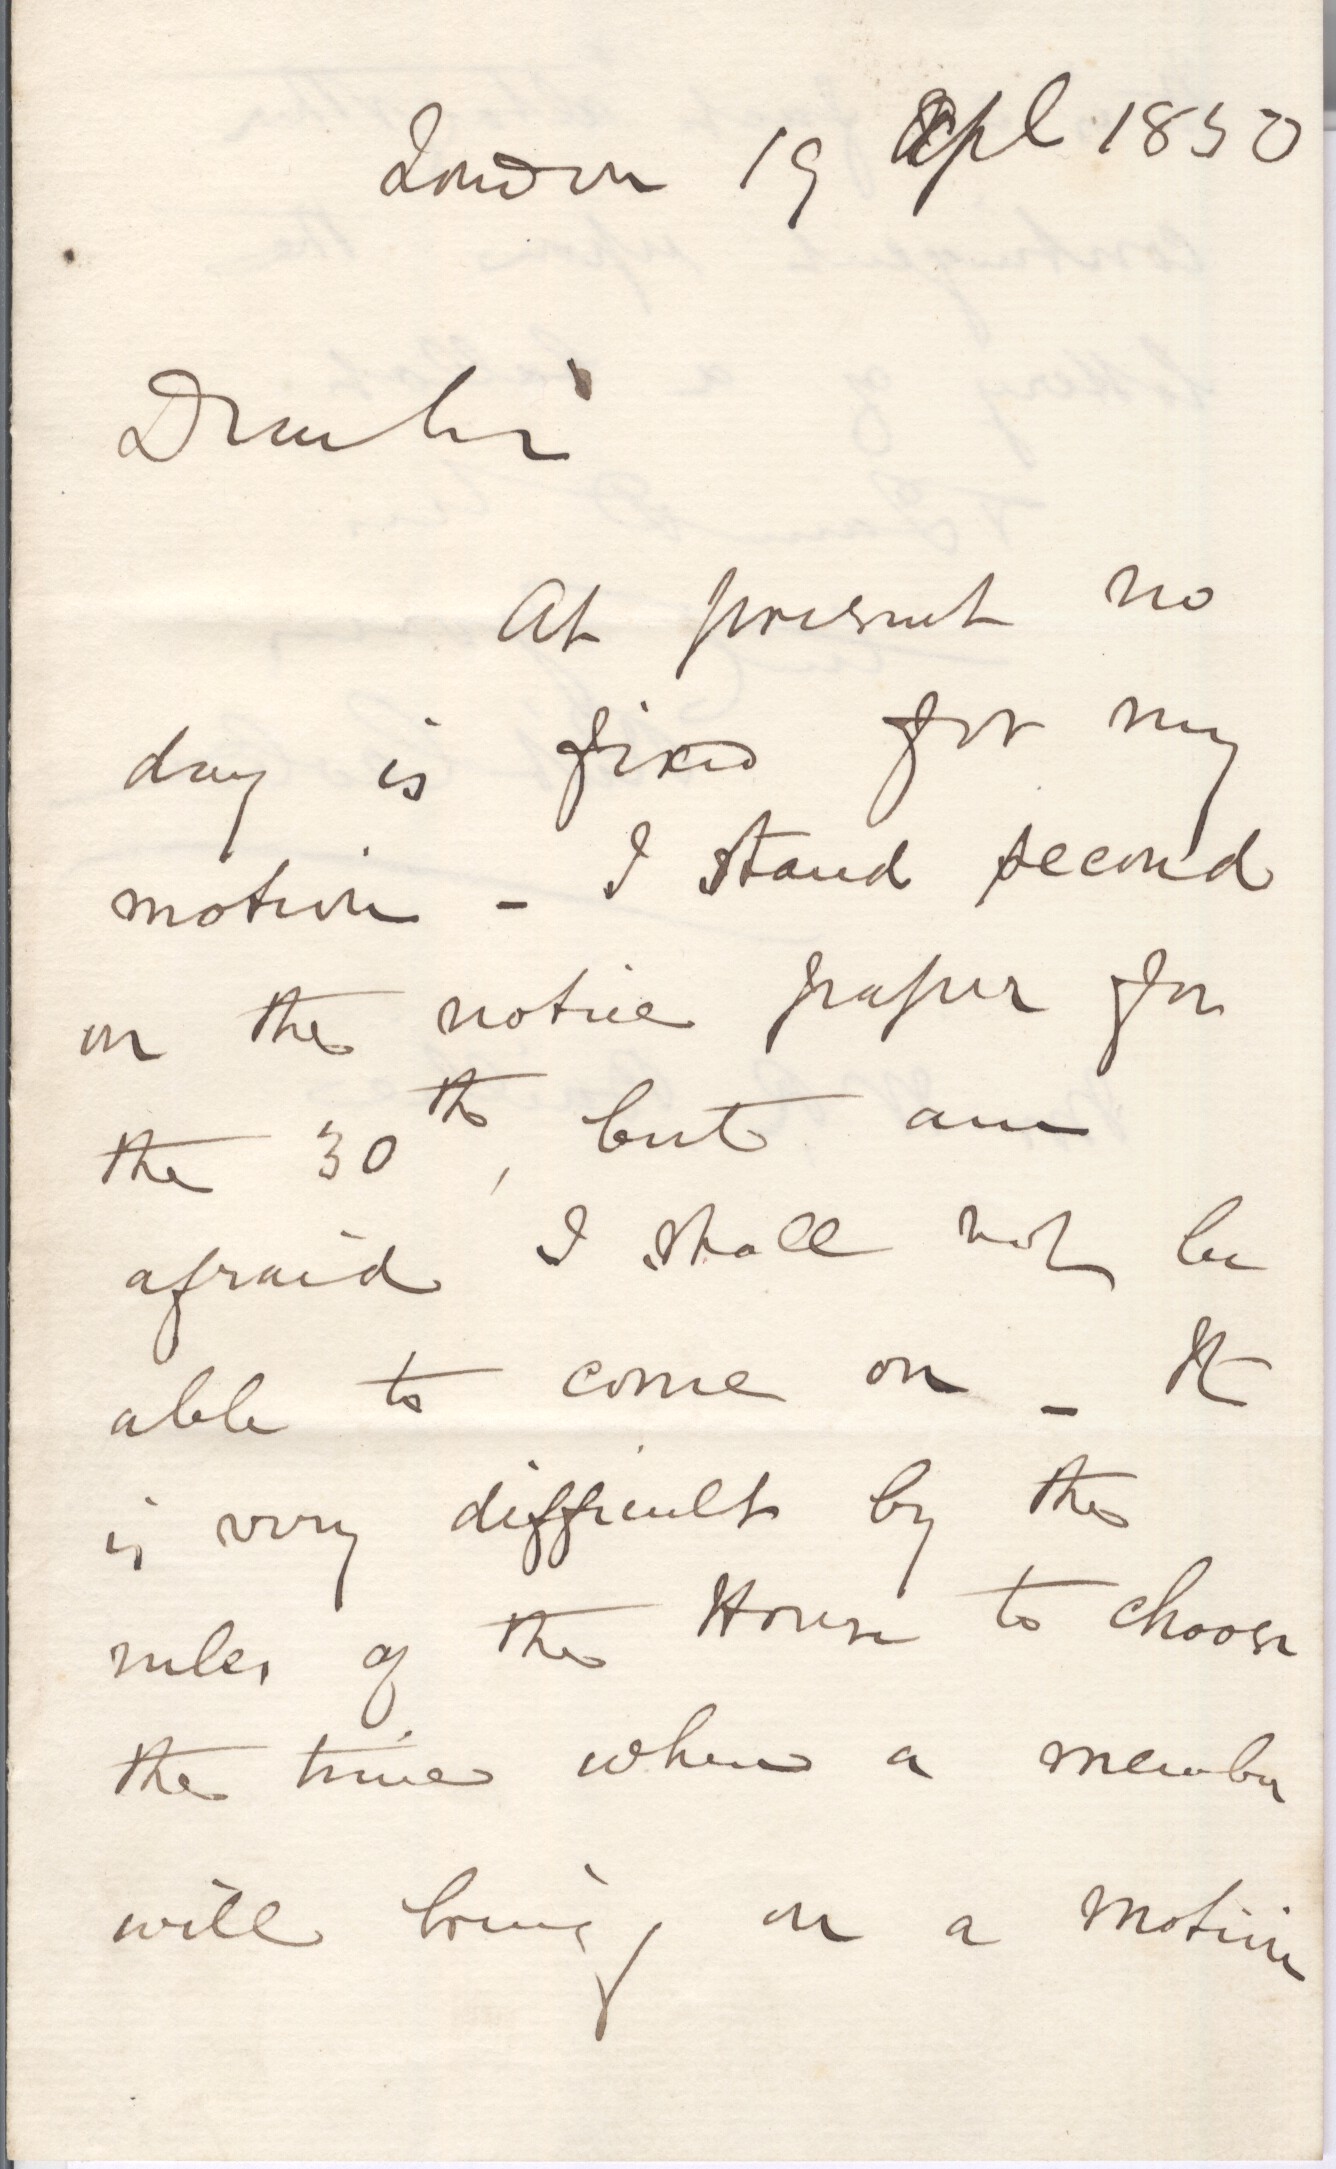 London 19 Apl 1850
Dear Sir
At present no
day is fixed for my
motion - I stand second
on the notice paper for
the 30th, but am
afraid I shall not be
able to come on - It
is very difficult by the
rules of the House to choose
the time when a member
will bring on a motion